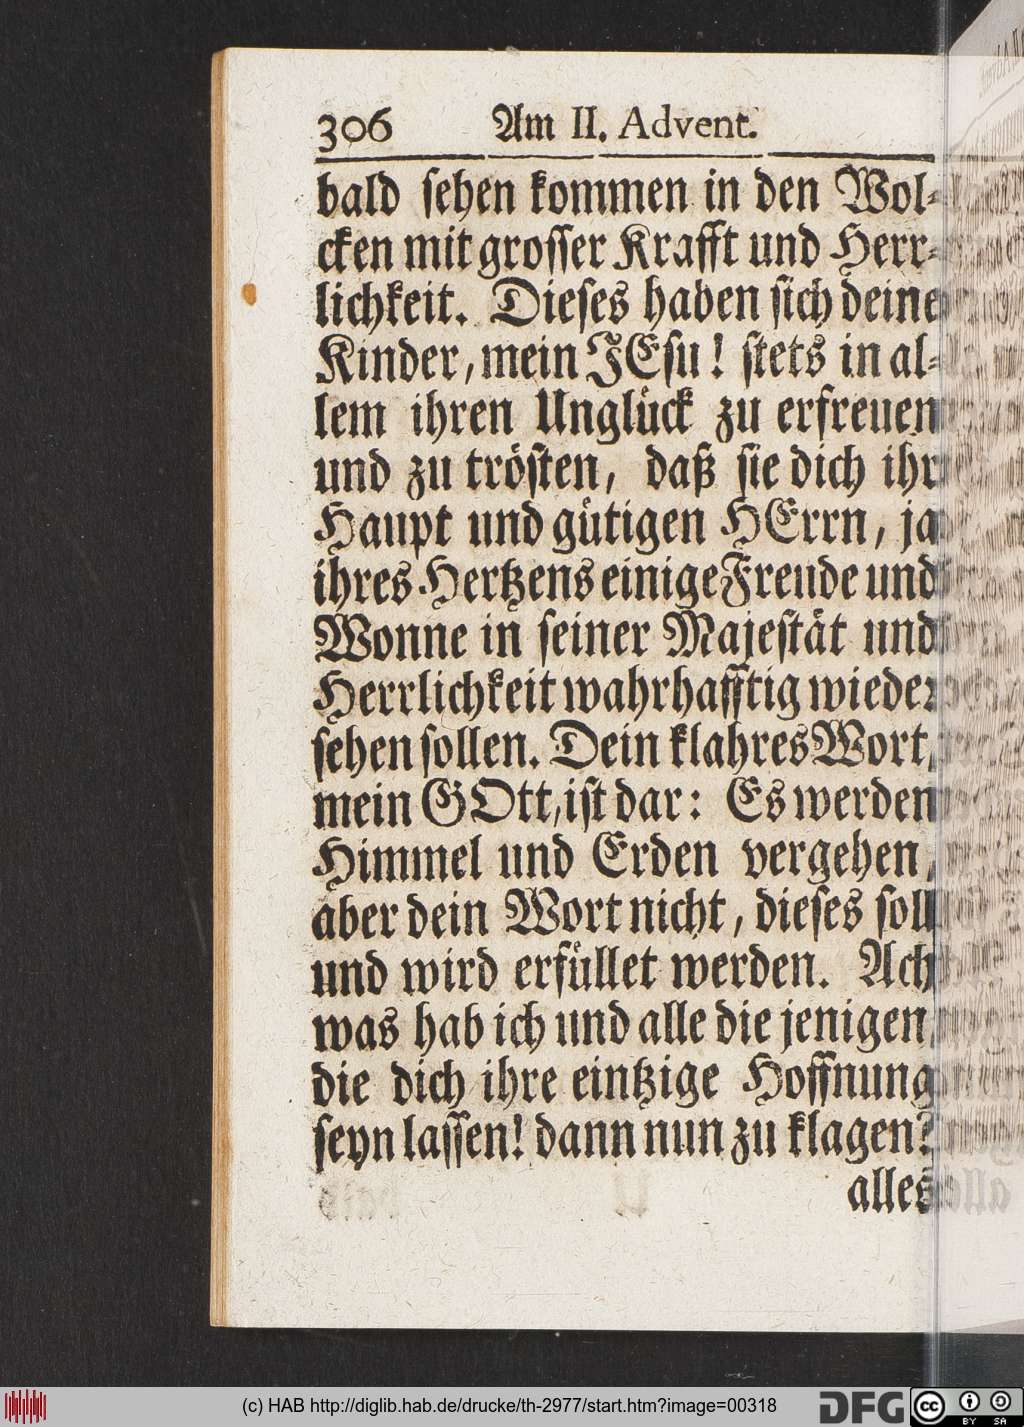 306 Am II. Advent.
bald sehen kommen in den Wol-
cken mit grosser Krafft und Herr-
lichkeit. Dieses haben sich deine
Kinder, mein JEsu! stets in al-
lem ihren Unglück zu erfreuen
und zu trösten, daß sie dich ihr
Haupt und gütigen HErrn, ja
ihres Hertzens einige Freude und
Wonne in seiner Majestät und
Herrlichkeit wahrhafftig wieder
sehen sollen. Dein klahres Wort,
mein GOtt, ist dar: Es werden
Himmel und Erden vergehen,
aber dein Wort nicht, dieses soll
und wird erfüllet werden. Ach
was hab ich und alle die jenigen,
die dich ihre eintzige Hoffnung
seyn lassen! dann nun zu klagen?
alles
(c) HAB http://diglib.hab.de/drucke/th-2977/start.htm?image=00318
DFG
cc BY SA